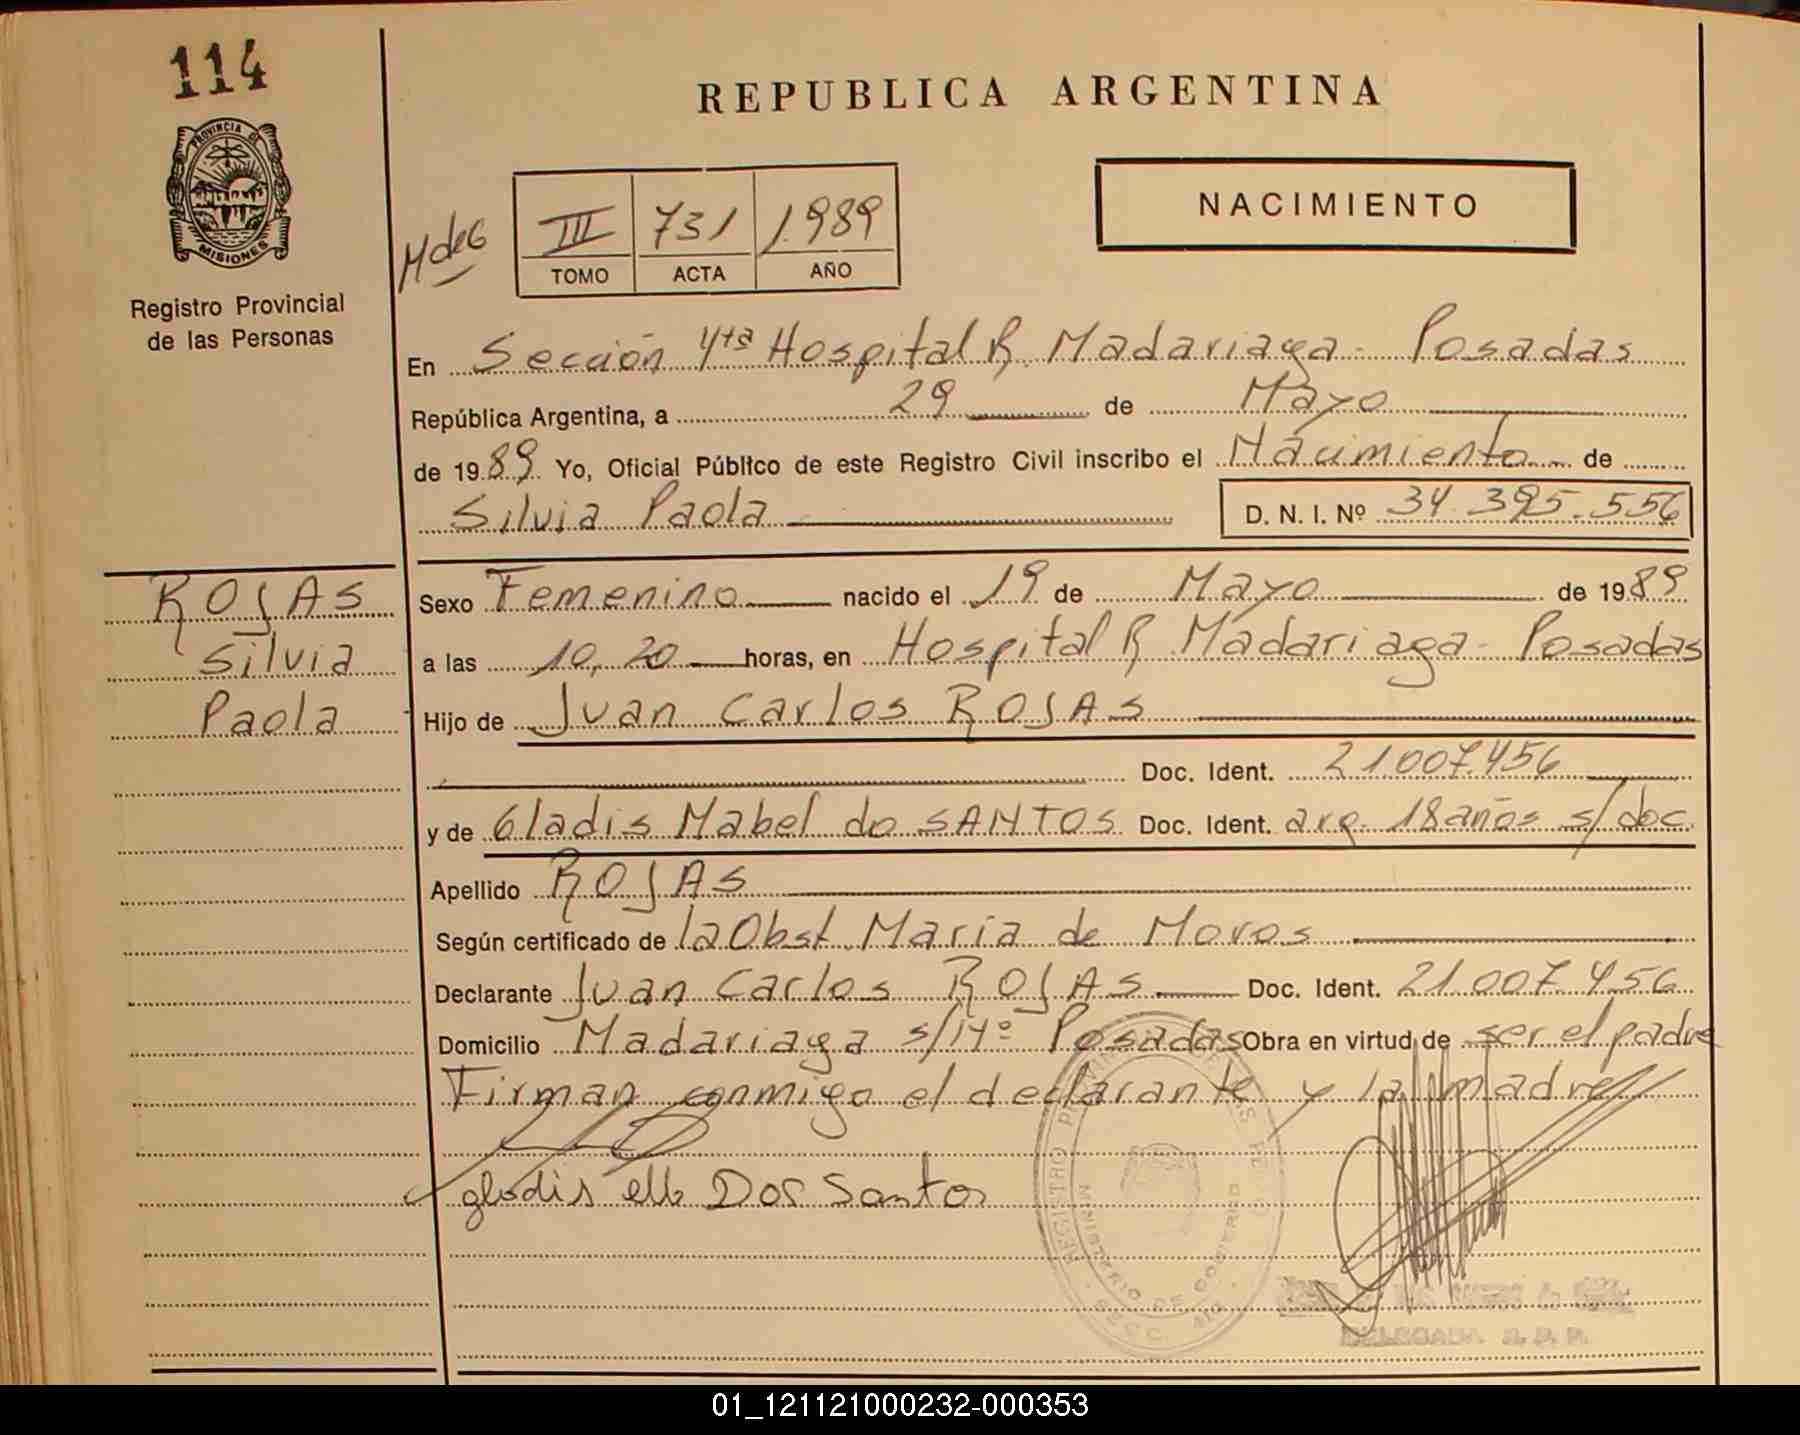 114
PROVINCIA DE
MISIONES
Registro Provincial
de las Personas
REPUBLICA ARGENTINA
NACIMIENTO
M de G
III 731 1.989
TOMO ACTA AÑO
En Sección 4ta Hospital R. Madariaga - Posadas
República Argentina, a 29 de Mayo
de 1989 Yo, Oficial Público de este Registro Civil inscribo el Nacimiento de
Silvia Paola D. N. I. Nº 34.395.556
ROJAS
Silvia
Paola
Sexo Femenino nacido el 19 de Mayo de 1989
a las 10,20 horas, en Hospital R. Madariaga - Posadas
Hijo de Juan Carlos ROJAS
Doc. Ident. 21.007.456
y de Gladis Mabel do SANTOS Doc. Ident. arg. 18 años s/doc.
Apellido ROJAS
Según certificado de la Obst. María de Moros
Declarante Juan Carlos ROJAS Doc. Ident. 21.007.456
Domicilio Madariaga s/Nº Posadas Obra en virtud de ser el padre
Firman conmigo el declarante y la madre
Dos Santos
REGISTRO
MINISTERIO DE GOBIERNO
SECC. 4ta.
DELEGADA R. P. P.
01_121121000232-000353